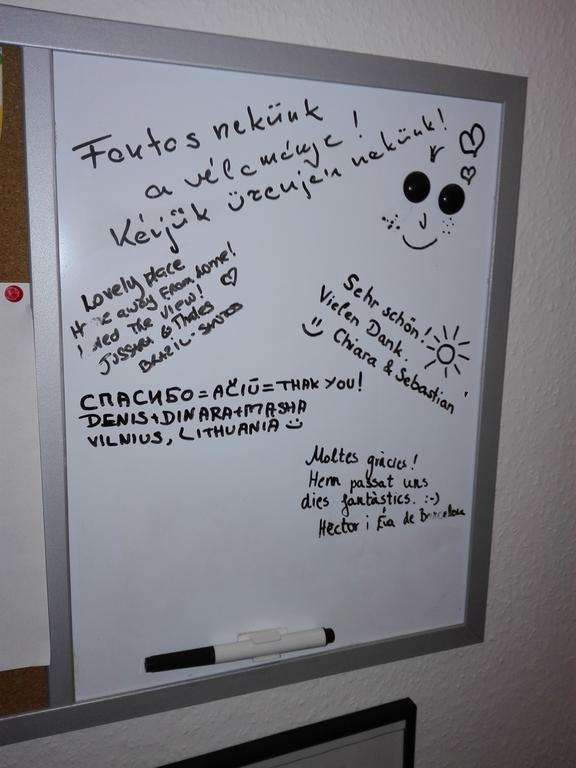 Fontos nekünk
a véleménye!
Kérjük üzenjen nekünk!
Lovely place
away from home!
the view!
& Thales
BRAZIL - SANTOS
Sehr schön!
Vielen Dank.
Chiara & Sebastian
СПАСИБО = AČIŪ = THAK YOU!
DENIS + DINARA + MASHA
VILNIUS, LITHUANIA
Moltes gràcies!
Hem passat uns
dies fantàstics. :-)
Hèctor i Eva de Barcelona